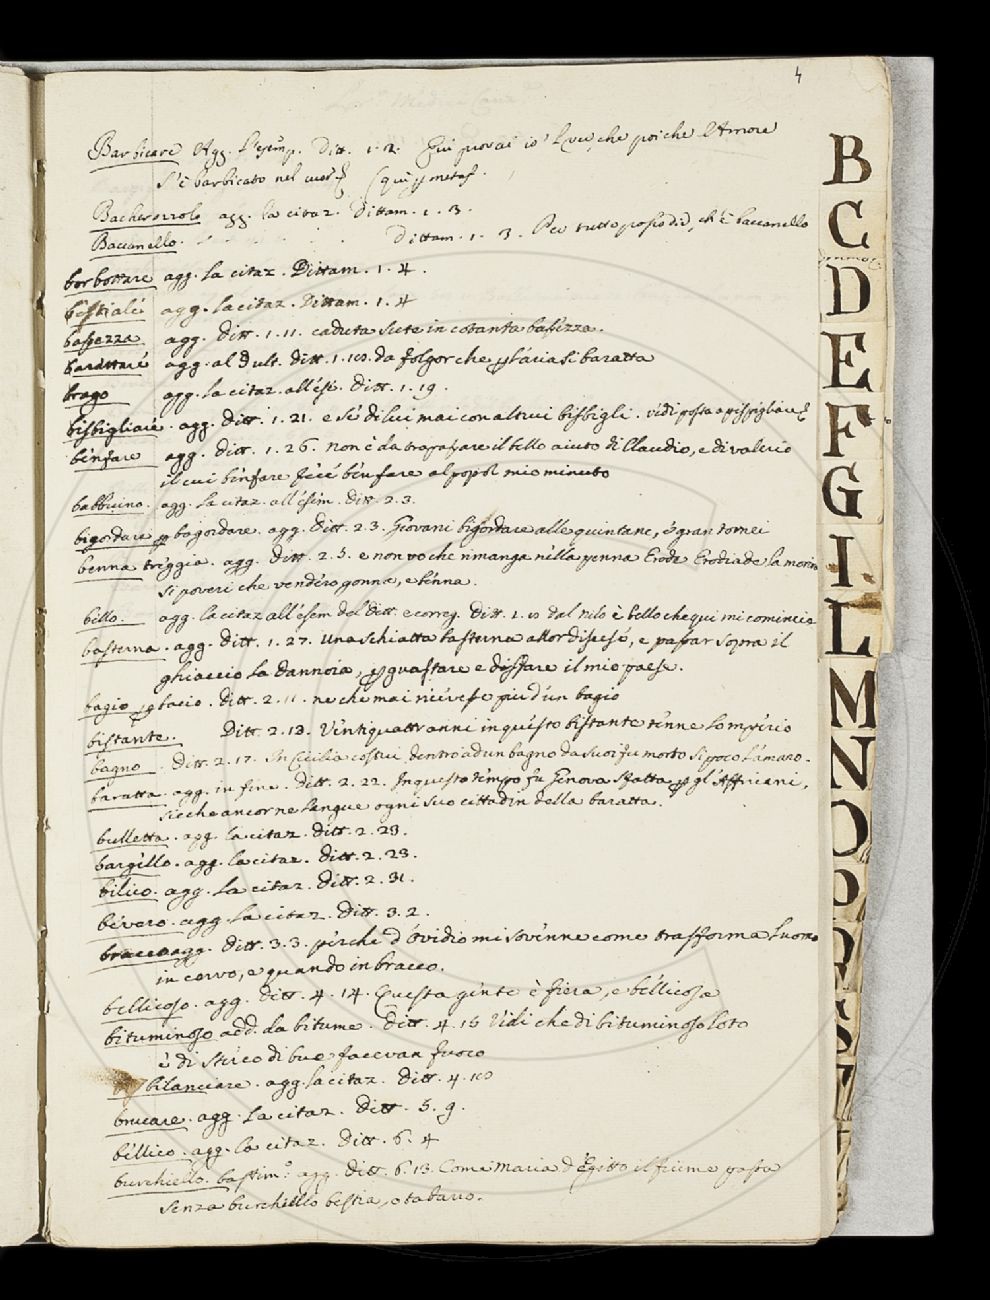 4
Barbicare Agg. l'esemp. Ditt. 1. 2. Qui provai io che poiche l'Amore
s'è barbicato nel cuor (qui p metaf.
Bacherozzolo agg. la citaz. Dittam. 1. 3.
Baccanello. Dittam. 1. 3. Per tutto posso dir, ch'è baccanello
borbottare agg. la citaz. Dittam. 1. 4.
bestiale agg. la citaz. Dittam. 1. 4
bassezza agg. Ditt. 1. 11. caduta siete in cotanta bassezza.
barattare agg. al § ult. Ditt. 1. 10. da folgor che p l'aria si baratta
brago agg. la citaz. all'es. Ditt. 1. 19.
bisbigliare. agg. Ditt. 1. 21. e se di lui mai con altrui bisbigli. vedi posta a pispigliare
benfare agg. Ditt. 1. 26. non è da trapassare il bello aiuto di Claudio, e di valerio
il cui benfare fece benfare al popol mio minuto
babbuino. agg. la citaz. all'esem. Ditt. 2. 3.
bigordare p bagordare. agg. Ditt. 2. 3. Giovani bigordare alle quintane, e gran tornei
benna treggia. agg. Ditt. 2. 5. e non vo che rimanga nella penna Erode Erodiade la
si poveri che vendero gonna, e benna.
bello. agg. la citaz all'esem del Ditt. e correg. Ditt. 1. 10 dal nilo è bello che qui mi comincia
basterna. agg. Ditt. 1. 27. una schiatta basterna allor discese, e passar sopra il
ghiaccio la Dannoia, p guastare e disfare il mio paese.
bagio p bacio. Ditt. 2. 11. ne che mai ricevesse piu d'un bagio
bistante. Ditt. 2. 13. Vintiquattr anni in questo bistante tenne lo mperio
bagno. Ditt. 2. 17. In Cicilia costui dentro ad un bagno da suoi fu morto si poco l'amaro.
baratta. agg. in fine. Ditt. 2. 22. In questo tempo fu Genova sfatta p gl'Affricani,
sicche ancor ne langue ogni suo cittadin della baratta.
bulletta. agg. la citaz. Ditt. 2. 23.
bargello. agg. la citaz. Ditt. 2. 23.
bilico. agg. la citaz. Ditt. 2. 31.
bevero. agg. la citaz. Ditt. 3. 2.
bracco agg. Ditt. 3. 3. perche d'Ovidio mi sovenne come trasforma l'uomo
in corvo, e quando in bracco.
bellicoso. agg. Ditt. 4. 14. Questa gente è fiera, e bellicosa
bituminoso add. da bitume. Ditt. 4. 15 Vidi che di bituminoso loto
e di sterco di bue facevan fuoco
bilanciare. agg. la citaz. Ditt. 4. 10
brucare. agg. la citaz. Ditt. 5. 9.
bellico. agg. la citaz. Ditt. 6. 4
burchiello. bastim.° agg. Ditt. 6. 13. Come Maria d'Egitto il fiume passa
senza burchiello bestia, o tabarro.
B
C
D
E
F
G
I
L
M
N
O
P
Q
S